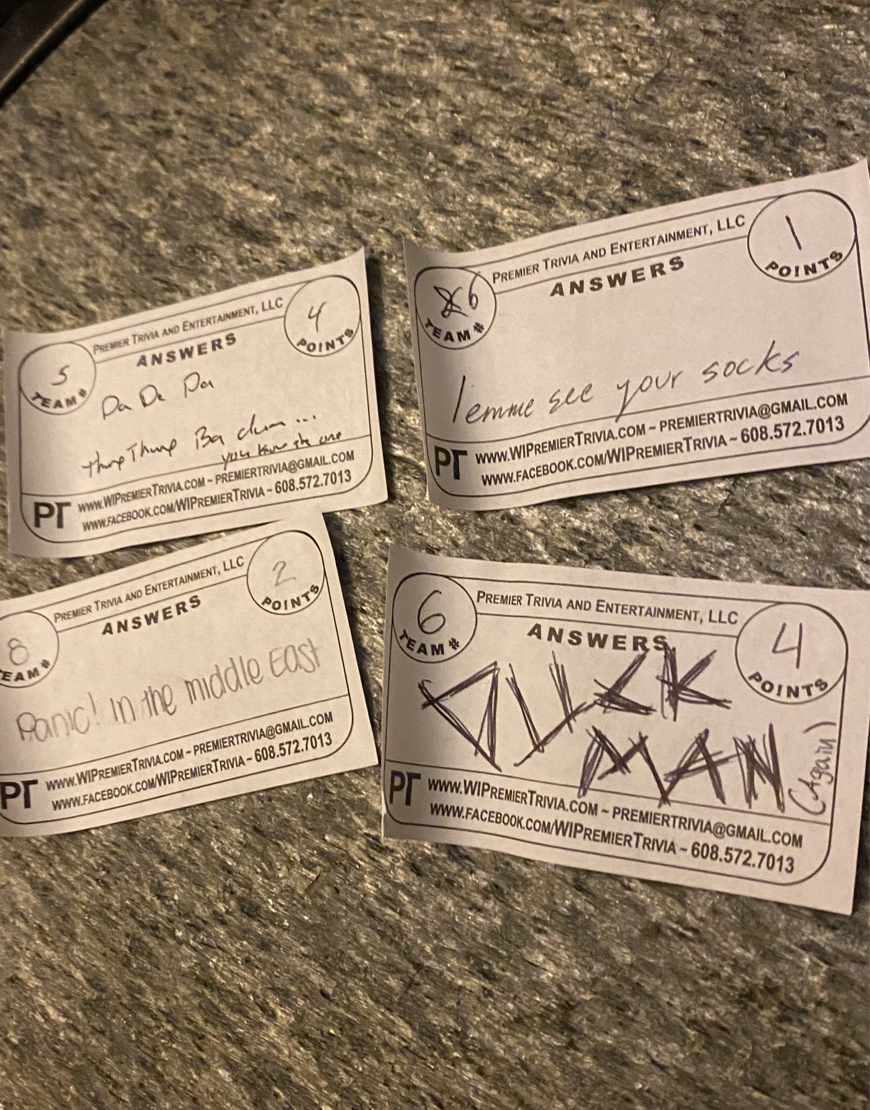 PREMIER TRIVIA AND ENTERTAINMENT, LLC
ANSWERS
5
TEAM #
4
POINTS
Da De Da
Thump Thump Ba dum...
you know the one
PT
WWW.WIPREMIERTRIVIA.COM ~ PREMIERTRIVIA@GMAIL.COM
WWW.FACEBOOK.COM/WIPREMIERTRIVIA ~ 608.572.7013
PREMIER TRIVIA AND ENTERTAINMENT, LLC
ANSWERS
6
TEAM #
1
POINTS
lemme see your socks
PT
WWW.WIPREMIERTRIVIA.COM ~ PREMIERTRIVIA@GMAIL.COM
WWW.FACEBOOK.COM/WIPREMIERTRIVIA ~ 608.572.7013
PREMIER TRIVIA AND ENTERTAINMENT, LLC
ANSWERS
8
TEAM #
2
POINTS
Panic! In the middle East
PT
WWW.WIPREMIERTRIVIA.COM ~ PREMIERTRIVIA@GMAIL.COM
WWW.FACEBOOK.COM/WIPREMIERTRIVIA ~ 608.572.7013
PREMIER TRIVIA AND ENTERTAINMENT, LLC
ANSWERS
6
TEAM #
4
POINTS
DUCK
MAN
(Again)
PT
WWW.WIPREMIERTRIVIA.COM ~ PREMIERTRIVIA@GMAIL.COM
WWW.FACEBOOK.COM/WIPREMIERTRIVIA ~ 608.572.7013